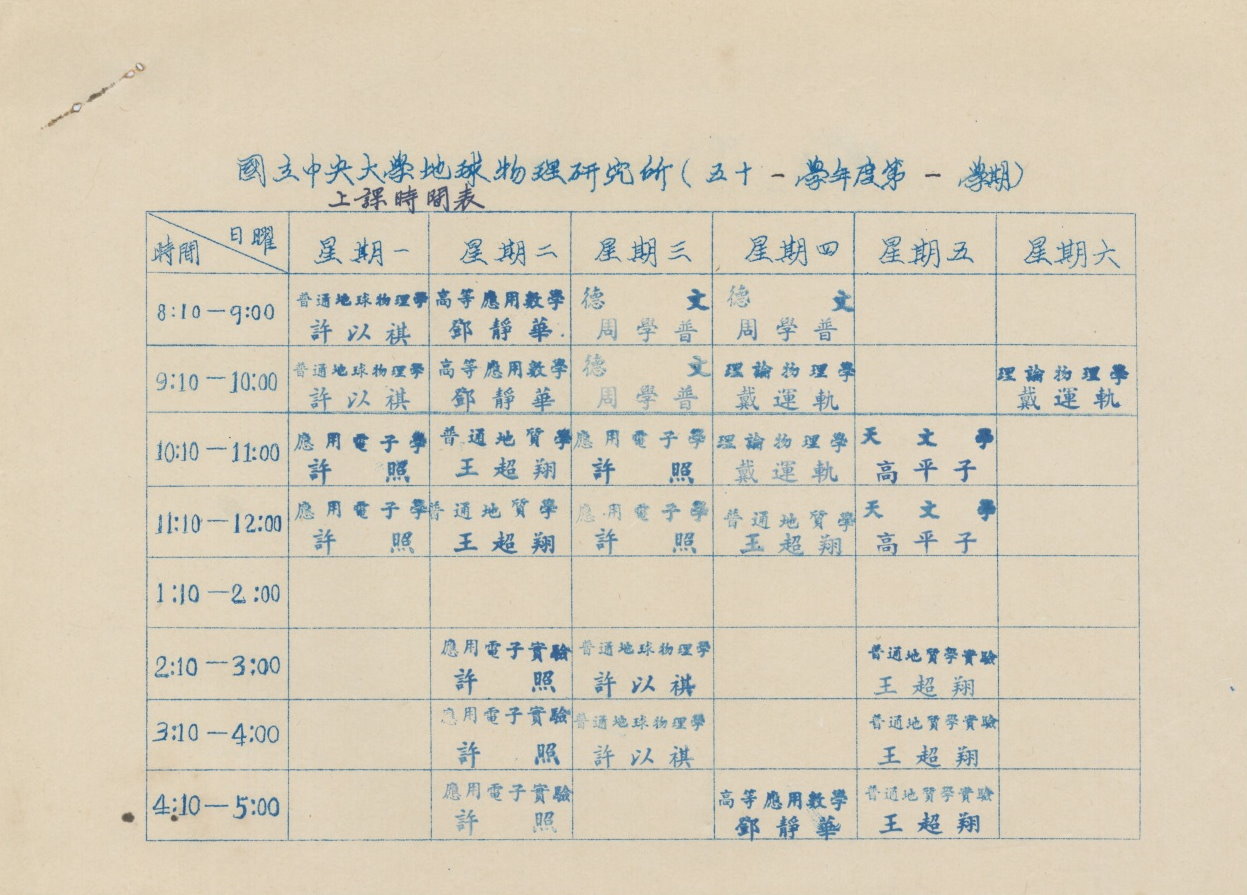 國立中央大學地球物理研究所(五十一學年度第一學期)
上課時間表
日曜
時間
星期一 星期二 星期三 星期四 星期五 星期六
8:10—9:00
普通地球物理學 高等應用數學 德文 德文
許以祺 鄧靜華 周學普 周學普
9:10—10:00
普通地球物理學 高等應用數學 德文 理論物理學 理論物理學
許以祺 鄧靜華 周學普 戴運軌 戴運軌
10:10—11:00
應用電子學 普通地質學 應用電子學 理論物理學 天文學
許照 王超翔 許照 戴運軌 高平子
11:10—12:00
應用電子學 普通地質學 應用電子學 普通地質學 天文學
許照 王超翔 許照 王超翔 高平子
1:10—2:00
2:10—3:00
應用電子實驗 普通地球物理學 普通地質學實驗
許照 許以祺 王超翔
3:10—4:00
應用電子實驗 普通地球物理學 普通地質學實驗
許照 許以祺 王超翔
4:10—5:00
應用電子實驗 高等應用數學 普通地質學實驗
許照 鄧靜華 王超翔